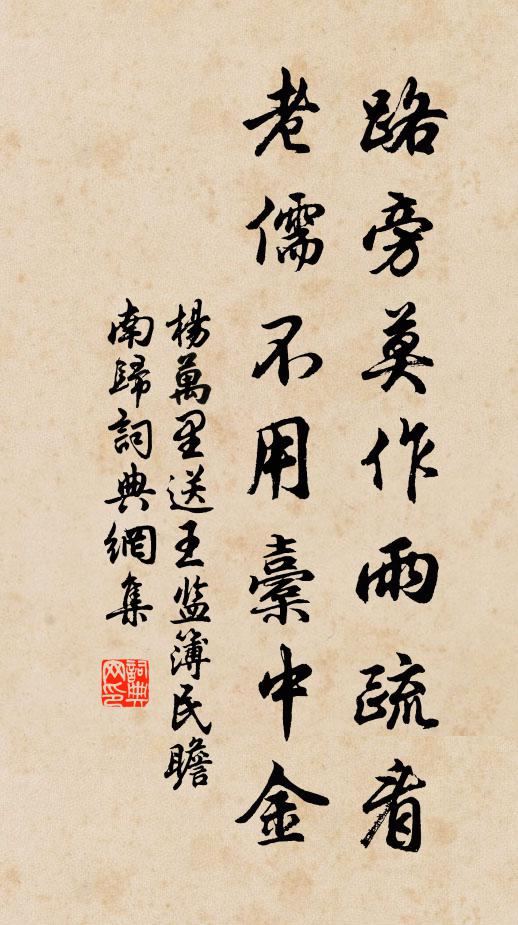 路旁莫作兩疏看
老儒不用橐中金
楊萬里送王监簿民瞻
南歸詞典網集
詞典
网印